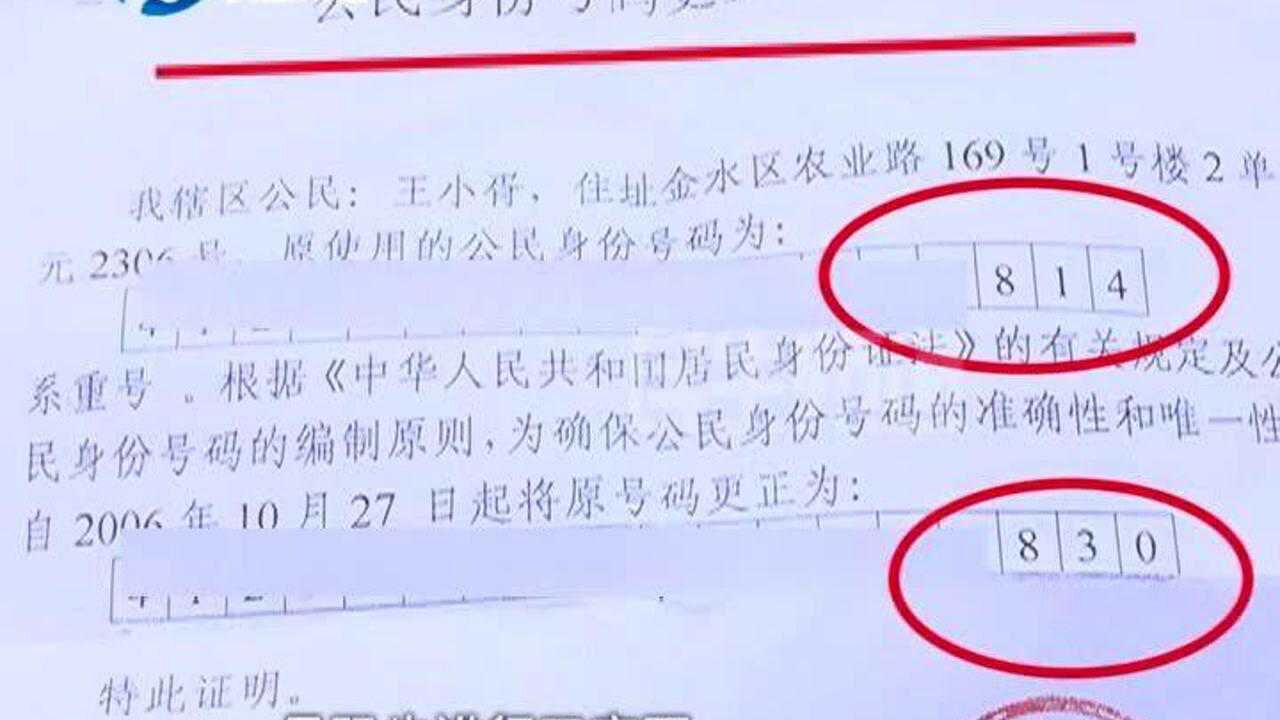 公民身份号码更
我辖区公民：王小胥，住址金水区农业路 169 号 1 号楼 2 单
元 2306 号，原使用的公民身份号码为：
8 1 4
系重号 。根据《中华人民共和国居民身份证法》的有关规定及公
民身份号码的编制原则,为确保公民身份号码的准确性和唯一性
自 2006 年 10 月 27 日起将原号码更正为：
8 3 0
特此证明。